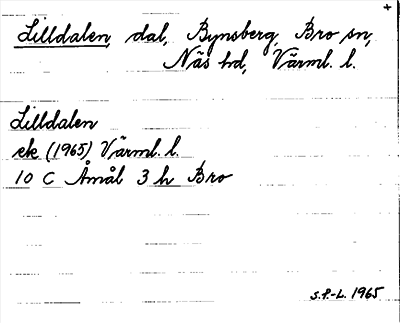 +
Lilldalen, dal, Bynsberg, Bro sn,
Näs hd, Värml. l.
Lilldalen
ek (1965) Värml. l.
10 C Åmål 3 h Bro
S.P-L. 1965